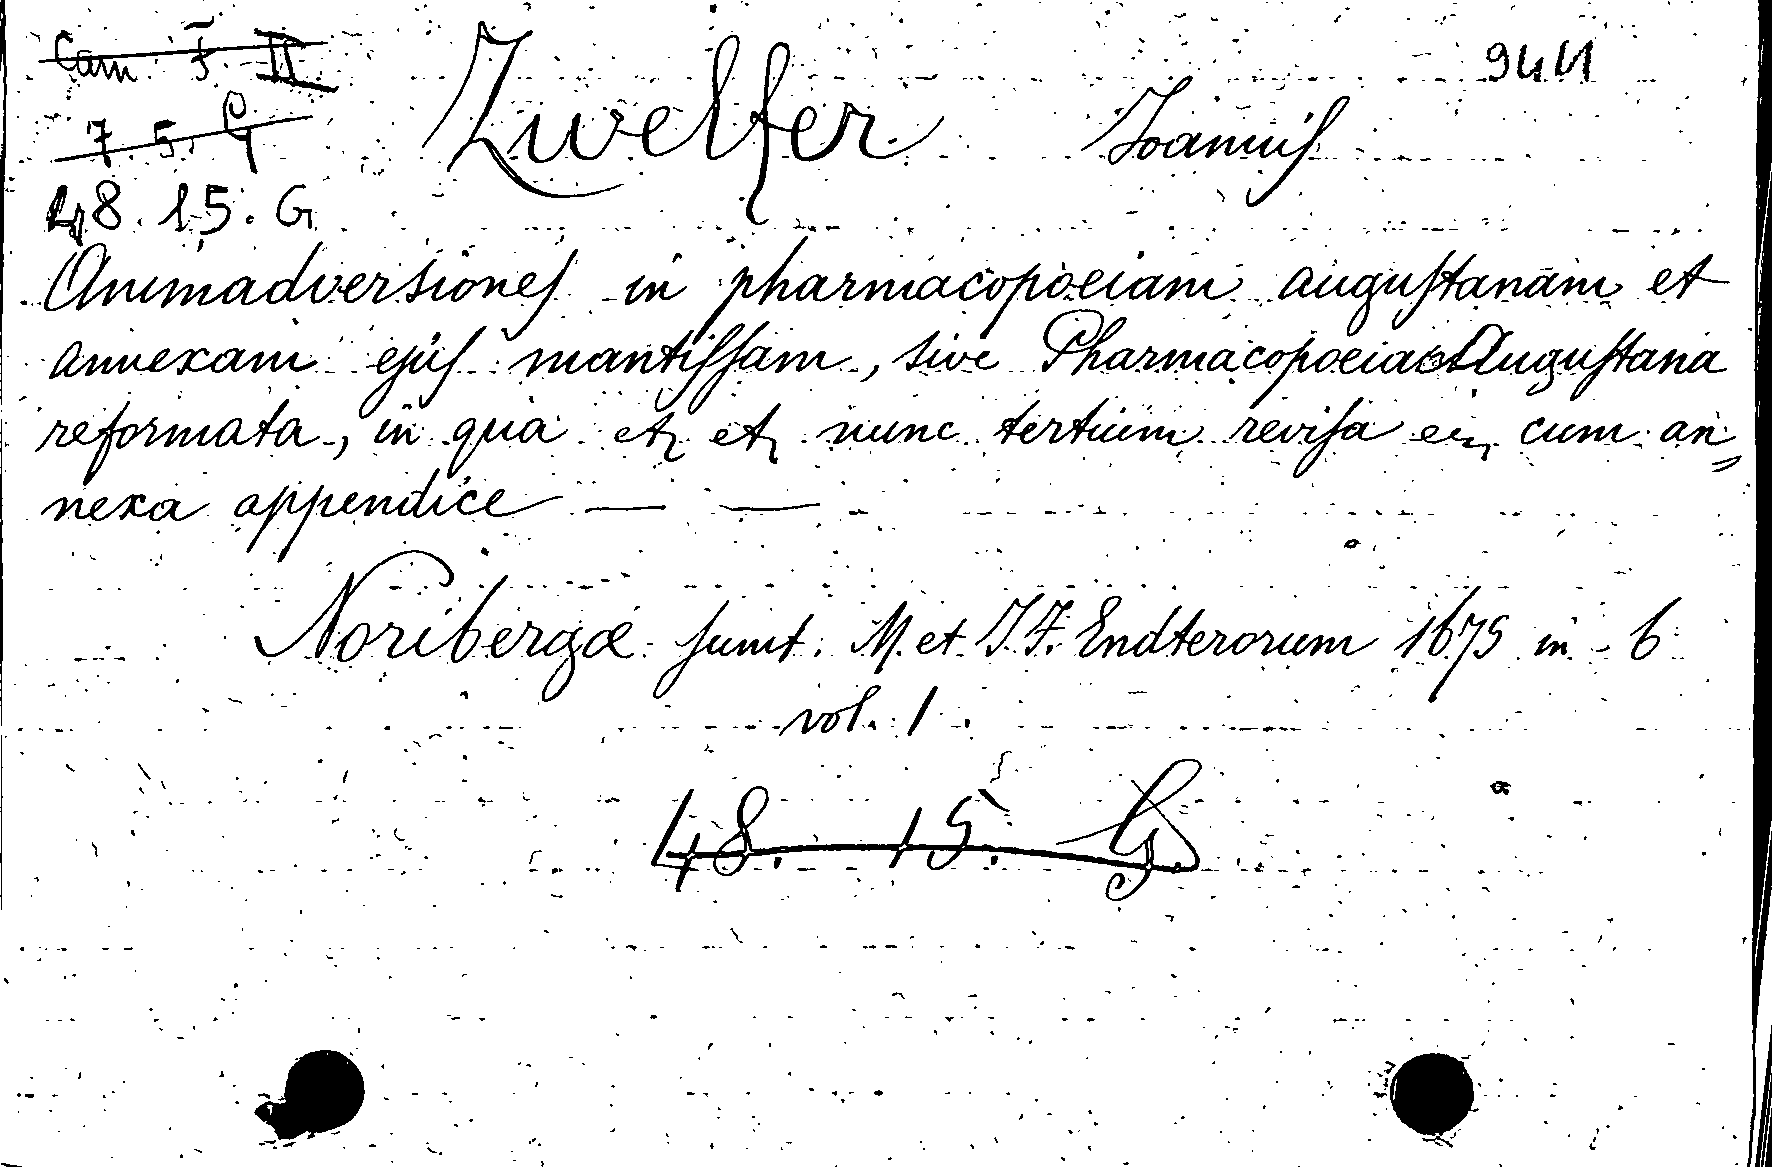 Cam. F. II.
7. 5. G
48. 15. G
Zwelfer Joannis
Animadversiones in pharmacopoeiam augustanam et
annexam ejus mantissam, sive Pharmacopoeia Augustana
reformata, in qua et, et, nunc tertium revisa cum an„
nexa appendice — —
Noribergæ sumt. M. et J. F. Endterorum 1675 in - 6
vol. 1.
48. 15. G.